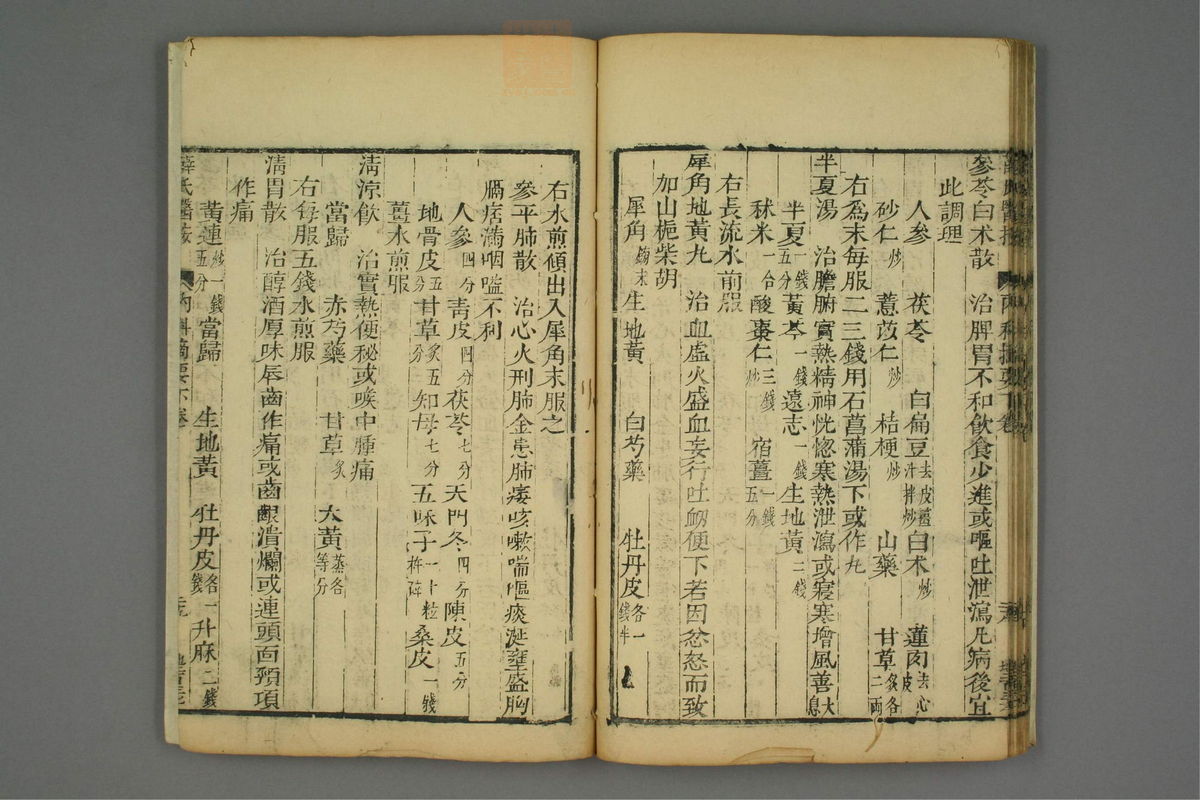 參苓白术散 治脾胃不和飲食少進或嘔吐泄瀉凡病後宜
此調理
人參 茯苓 白扁豆去皮薑汁拌炒 白术炒 蓮肉去心皮
砂仁炒 薏苡仁炒 桔梗炒 山藥 甘草炙各二兩
右爲末每服二三錢用石菖蒲湯下或作丸
半夏湯 治膽腑實熱精神恍惚寒熱泄瀉或寢寒增風善大息
半夏一錢五分 黃芩一錢 遠志一錢 生地黃二錢
秫米一合 酸棗仁炒三錢 宿薑一錢五分
右長流水煎服
犀角地黃丸 治血虛火盛血妄行吐衂便下若因忿怒而致
加山梔柴胡
犀角鎊末 生地黃 白芍藥 牡丹皮各一錢半
右水煎傾出入犀角末服之
參平肺散 治心火刑肺金患肺痿咳嗽喘嘔痰涎壅盛胸
膈痞滿咽嗌不利
人參四分 青皮四分 茯苓七分 天門冬四分 陳皮五分
地骨皮五分 甘草炙五分 知母七分 五味子一十粒杵碎 桑皮一錢
薑水煎服
清涼飲 治實熱便秘或喉中腫痛
當歸 赤芍藥 甘草炙 大黃蒸各等分
右每服五錢水煎服
清胃散 治醇酒厚味唇齒作痛或齒齦潰爛或連頭面頸項
作痛
黃連炒一錢五分 當歸 生地黃 牡丹皮各一錢 升麻二錢
薛氏醫按 內科摘要下卷